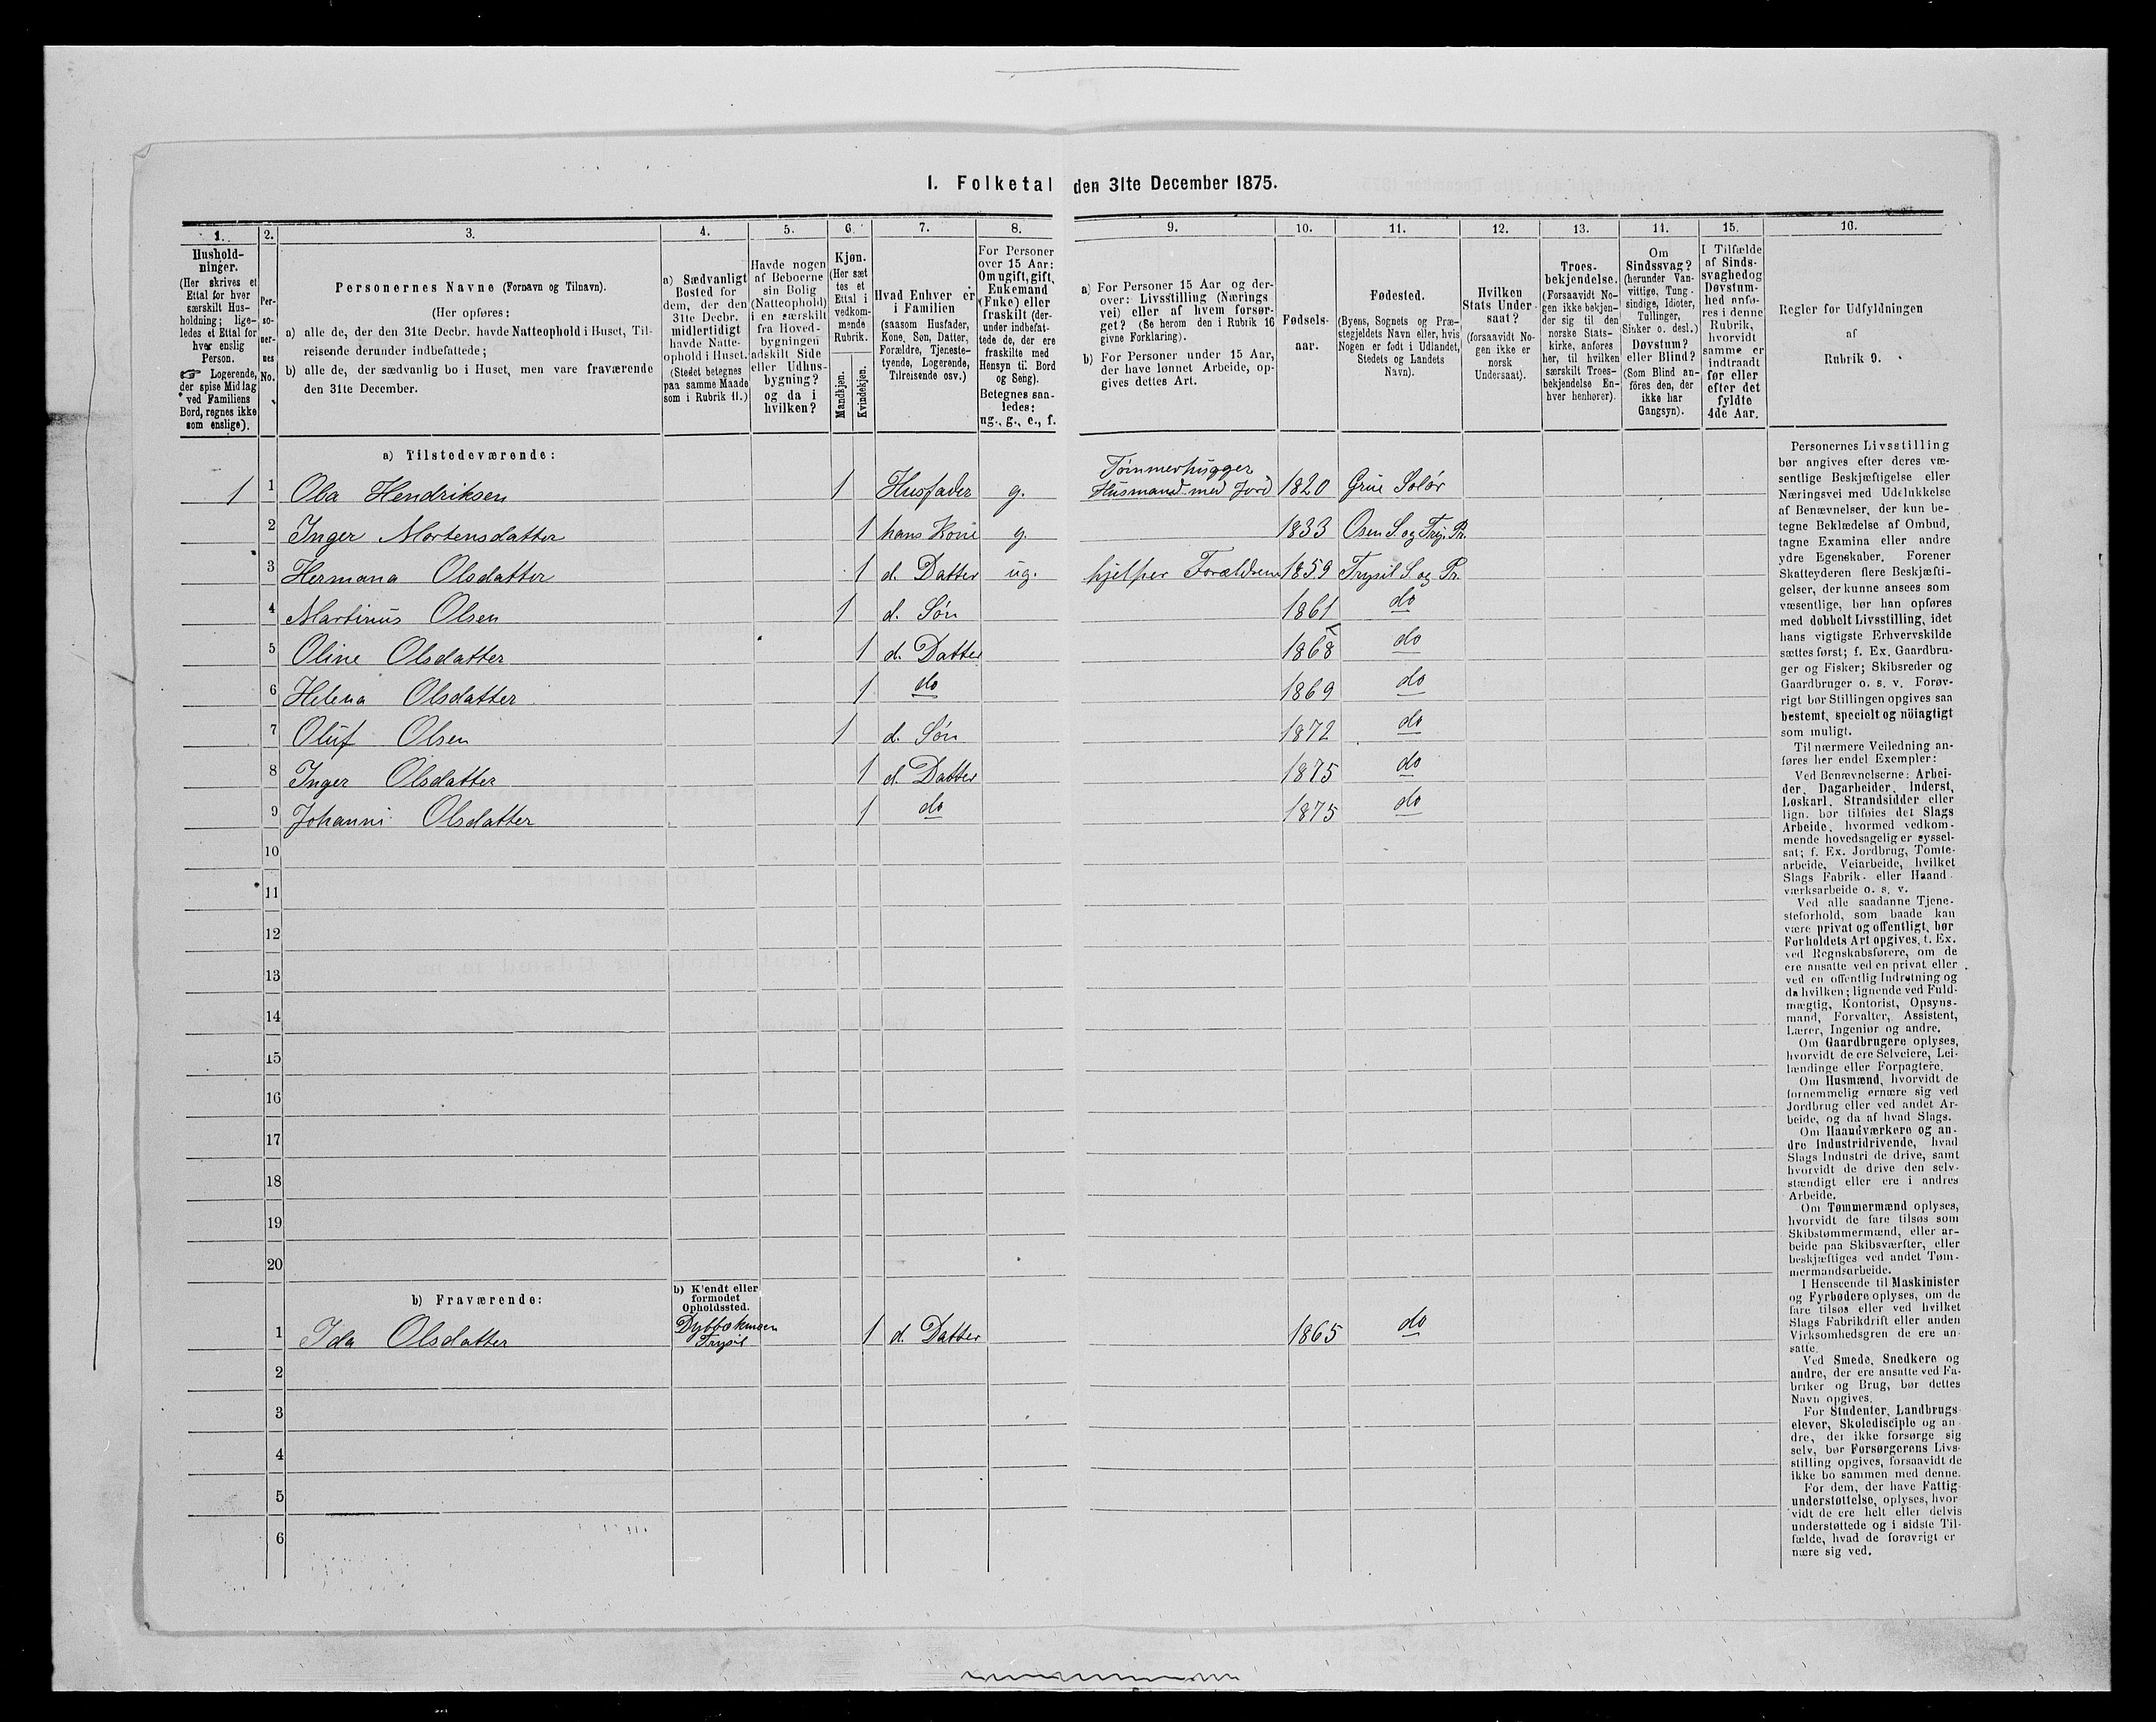 I. Folketal den 31te December 1875.
1.
Hushold-
ninger.
(Her skrives et
Ettal for hver
særskilt Hus-
holdning; lige-
ledes et Ettal for
hver enslig
Person.
☞ Logerende,
der spise Middag
ved Familiens
Bord, regnes ikke
som enslige).
2.
Per-
so-
ner-
nes
No.
3.
Personernes Navne (Fornavn og Tilnavn).
(Her opføres:
a) alle de, der den 31te Decbr. havde Natteophold i Huset, Til-
reisende derunder indbefattede;
b) alle de, der sædvanlig bo i Huset, men vare fraværende
den 31te December.
4.
a) Sædvanligt
Bosted for
dem, der den
31te Decbr.
midlertidigt
havde Natte-
ophold i Huset.
(Stedet betegnes
paa samme Maade
som i Rubrik 11.)
5.
Havde nogen
af Beboerne
sin Bolig
(Natteophold)
i en særskilt
fra Hoved-
bygningen
adskilt Side
eller Udhus-
bygning?
og da i
hvilken?
6.
Kjøn.
(Her sæt
tes et
Ettal i
vedkom-
mende
Rubrik.
Mandkjøn.
Kvindekjøn.
7.
Hvad Enhver er
i Familien
(saasom Husfader,
Kone, Søn, Datter,
Forældre, Tjeneste-
tyende, Logerende,
Tilreisende osv.)
8.
For Personer
over 15 Aar:
Om ugift, gift,
Enkemand
(Enke) eller
fraskilt (der-
under indbefat-
tede de, der ere
fraskilte med
Hensyn til Bord
og Seng).
Betegnes saa-
ledes:
ug., g., e., f.
9.
a) For Personer 15 Aar og der-
over: Livsstilling (Nærings
vei) eller af hvem forsør-
get? (Se herom den i Rubrik 16
givne Forklaring).
b) For Personer under 15 Aar,
der have lønnet Arbeide, op-
gives dettes Art.
10.
Fødsels-
aar.
11.
Fødested.
(Byens, Sognets og Præ-
stegjeldets Navn eller, hvis
Nogen er født i Udlandet,
Stedets og Landets
Navn).
12.
Hvilken
Stats Under-
saat?
(forsaavidt No-
gen ikke er
norsk
Undersaat).
13.
Troes-
bekjendelse.
(Forsaavidt No-
gen ikke bekjen-
der sig til den
norske Stats-
kirke, anføres
her, til hvilken
særskilt Troes-
bekjendelse En-
hver henhører).
14.
Om
Sindssvag?
(herunder Van-
vittige, Tung-
sindige, Idioter,
Tullinger,
Sinker o. desl.)
Døvstum?
eller Blind?
(Som Blind an-
føres den, der
ikke har
Gangsyn).
15.
I Tilfælde
af Sinds-
svaghed og
Døvstum-
hed anfø-
res i denne
Rubrik,
hvorvidt
samme er
indtraadt
før eller
efter det
fyldte
4de Aar.
16.
Regler for Udfyldningen
af
Rubrik 9.
a) Tilstedeværende:
Tømmerhugger
1 1 Ola Hendriksen 1 Husfader g. Husmand med Jord 1820 Grue Solør
2 Inger Martensdatter 1 hans Kone g. 1833 Osen S. og Try. Pr.
3 Hermana Olsdatter 1 d. Datter ug. hjelper Forældrene 1859 Trysil S. og Pr.
4 Martinus Olsen 1 d. Søn 1861 do
5 Oline Olsdatter 1 d. Datter 1868 do
6 Helena Olsdatter 1 do 1869 do
7 Oluf Olsen 1 d. Søn 1872 do
8 Inger Olsdatter 1 d. Datter 1875 do
9 Johanni Olsdatter 1 do 1875 do
10
11
12
13
14
15
16
17
18
19
20
b) Fraværende:
b) Kjendt eller
formodet
Opholdssted.
1 Ida Olsdatter Trysil 1 d. Datter 1865 do
2
3
4
5
6
Personernes Livsstilling
bør angives efter deres væ-
sentlige Beskjæftigelse eller
Næringsvei med Udelukkelse
af Benævnelser, der kun be-
tegne Beklædelse af Ombud,
tagne Examina eller andre
ydre Egenskaber. Forener
Skatteyderen flere Beskjæfti-
gelser, der kunne ansees som
væsentlige, bør han opføres
med dobbelt Livsstilling, idet
hans vigtigste Erhvervskilde
sættes først; f. Ex. Gaardbru-
ger og Fisker; Skibsreder og
Gaardbruger o. s. v. Forøv-
rigt bør Stillingen opgives saa
bestemt, specielt og nöiagtigt
som muligt.
Til nærmere Veiledning an-
føres her endel Exempler:
Ved Benævnelserne: Arbei-
der, Dagarbeider, Inderst,
Løskarl, Strandsidder eller
lign. bør tilføies det Slags
Arbeide, hvormed vedkom-
mende hovedsagelig er syssel-
sat; f. Ex. Jordbrug, Tomte-
arbeide, Veiarbeide, hvilket
Slags Fabrik- eller Haand-
værksarbeide o. s. v.
Ved alle saadanne Tjene-
steforhold, som baade kan
være privat og offentligt, bør
Forholdets Art opgives, t. Ex.
ved Regnskabsførere, om de
ere ansatte ved en privat eller
ved en offentlig Indretning og
da hvilken; lignende ved Fuld-
mægtig, Kontorist, Opsyns-
mand, Forvalter, Assistent,
Lærer, Ingeniør og andre.
Om Gaardbrugere oplyses,
hvorvidt de ere Selveiere, Lei-
lændinge eller Forpagtere.
Om Husmænd, hvorvidt de
fornemmelig ernære sig ved
Jordbrug eller ved andet Ar-
beide, og da af hvad Slags.
Om Haandværkere og an-
dre Industridrivende, hvad
Slags Industri de drive, samt
hvorvidt de drive den selv-
stændigt eller ere i andres
Arbeide.
Om Tømmermænd oplyses,
hvorvidt de fare tilsøs som
Skibstømmermænd, eller ar-
beide paa Skibsværfter, eller
beskjæftiges ved andet Tøm-
mermandsarbeide.
I Henseende til Maskinister
og Fyrbødere oplyses, om de
fare tilsøs eller ved hvilket
Slags Fabrikdrift eller anden
Virksomhedsgren de ere an-
satte.
Ved Smede, Snedkere og
andre, der ere ansatte ved Fa-
briker og Brug, bør dettes
Navn opgives.
For Studenter, Landbrugs-
elever, Skoledisciple og an-
dre, der ikke forsørge sig
selv, bør Forsørgerens Livs-
stilling opgives, forsaavidt de
ikke bo sammen med denne.
For dem, der have Fattig-
understøttelse, oplyses, hvor-
vidt de ere helt eller delvis
understøttede og i sidste Til-
fælde, hvad de forøvrigt er-
nære sig ved.